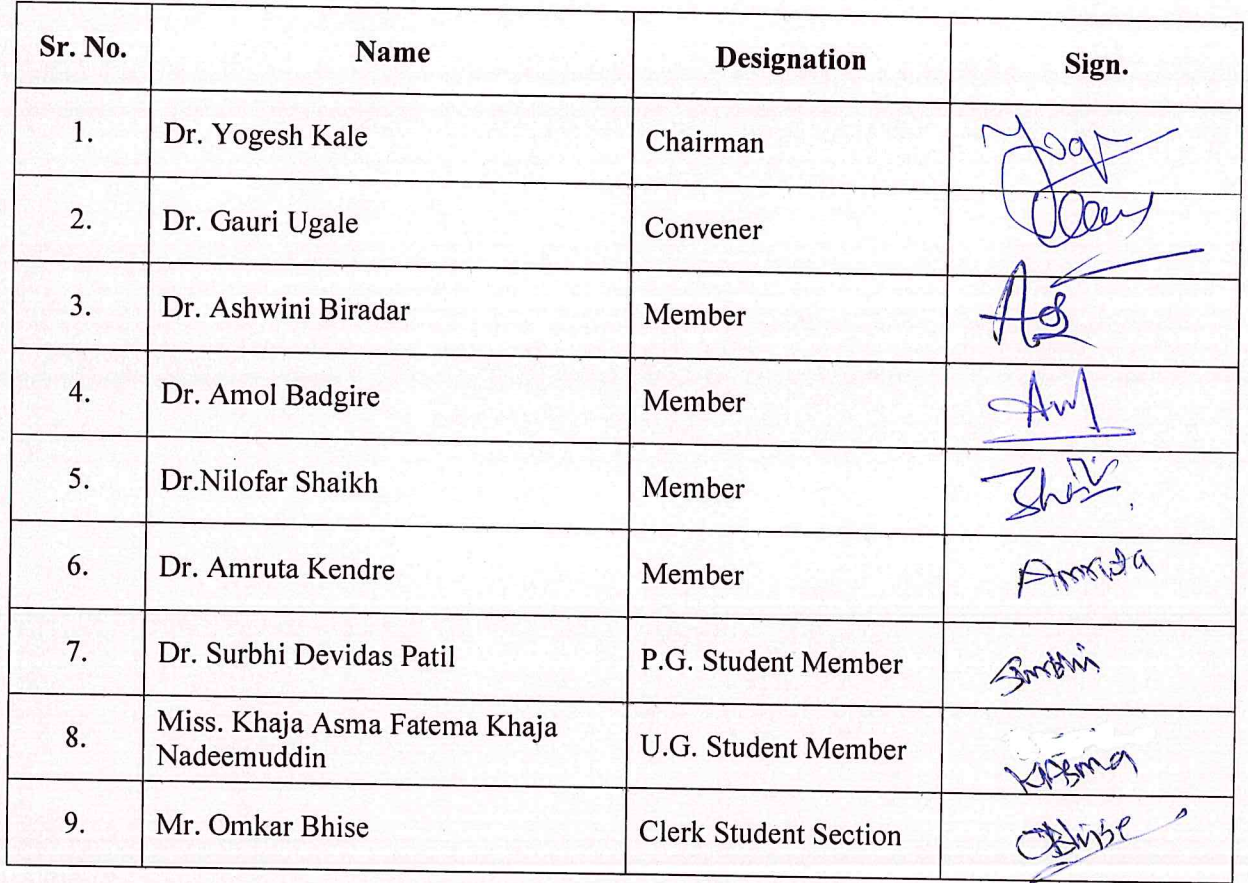 Sr. No. Name Designation Sign.
1. Dr. Yogesh Kale Chairman
2. Dr. Gauri Ugale Convener
3. Dr. Ashwini Biradar Member
4. Dr. Amol Badgire Member
5. Dr.Nilofar Shaikh Member
6. Dr. Amruta Kendre Member Amruta
7. Dr. Surbhi Devidas Patil P.G. Student Member Surbhi
8. Miss. Khaja Asma Fatema Khaja
Nadeemuddin U.G. Student Member KAsma
9. Mr. Omkar Bhise Clerk Student Section OBhise